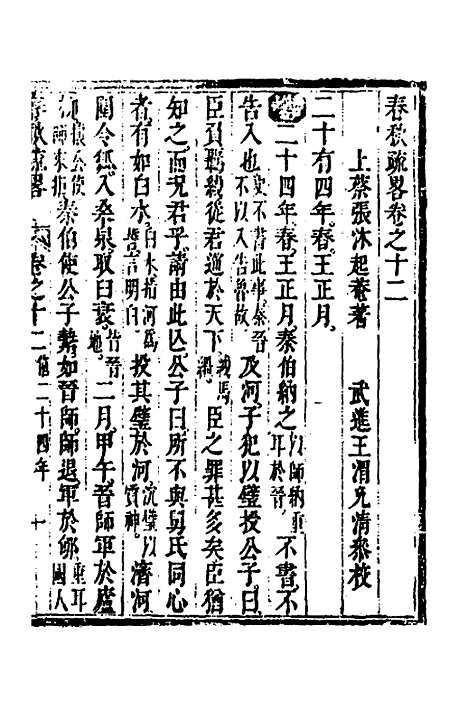 春秋疏畧卷之十二
上蔡張沐起菴著 武進王渭允清叅校
二十有四年春王正月
傳二十四年春王正月秦伯納之以師納重耳於晉不書不
告入也史不書此事秦晉不以入告魯故及河子犯以璧投公子曰
臣負羈絏從君巡於天下臣之罪甚多矣臣猶
知之而況君乎請由此亾公子曰所不與舅氏同心
者有如白水白水指河爲誓言明白投其璧於河沉璧以質神濟河
圍令狐入桑泉取臼衰皆晉地二月甲午晉師軍於廬
柳秦伯使公子縶如晉師師退軍於郇
春秋疏畧 卷之十二 僖二十四年